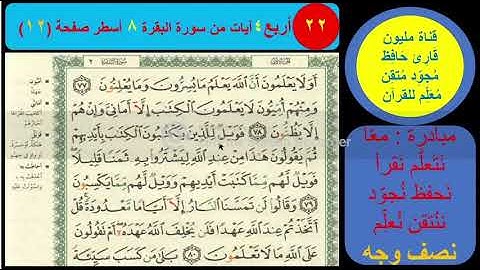 ٢٢
أربع ٤ آيات من سورة البقرة ٨ أسطر صفحة (١٢)
قناة مليون
قارئ حافظ
مُجوّد مُتقن
مُعلّم للقرآن
مبادرة : معًا
نَتعلّم نَقرأ
نَحفظ نُجوّد
نُتقن نُعلّم
نصف وجه
أَوَلَا يَعْلَمُونَ أَنَّ ٱللَّهَ يَعْلَمُ مَا يُسِرُّونَ وَمَا يُعْلِنُونَ ٧٧
وَمِنْهُمْ أُمِّيُّونَ لَا يَعْلَمُونَ ٱلْكِتَٰبَ إِلَّآ أَمَانِيَّ وَإِنْ هُمْ
إِلَّا يَظُنُّونَ ٧٨ فَوَيْلٌ لِّلَّذِينَ يَكْتُبُونَ ٱلْكِتَٰبَ بِأَيْدِيهِمْ
ثُمَّ يَقُولُونَ هَٰذَا مِنْ عِندِ ٱللَّهِ لِيَشْتَرُوا۟ بِهِۦ ثَمَنًا قَلِيلًا
فَوَيْلٌ لَّهُم مِّمَّا كَتَبَتْ أَيْدِيهِمْ وَوَيْلٌ لَّهُم مِّمَّا يَكْسِبُونَ
٧٩ وَقَالُوا۟ لَن تَمَسَّنَا ٱلنَّارُ إِلَّآ أَيَّامًا مَّعْدُودَةً قُلْ
أَتَّخَذْتُمْ عِندَ ٱللَّهِ عَهْدًا فَلَن يُخْلِفَ ٱللَّهُ عَهْدَهُۥٓ أَمْ تَقُولُونَ
عَلَى ٱللَّهِ مَا لَا تَعْلَمُونَ ٨٠ بَلَىٰ مَن كَسَبَ سَيِّئَةً